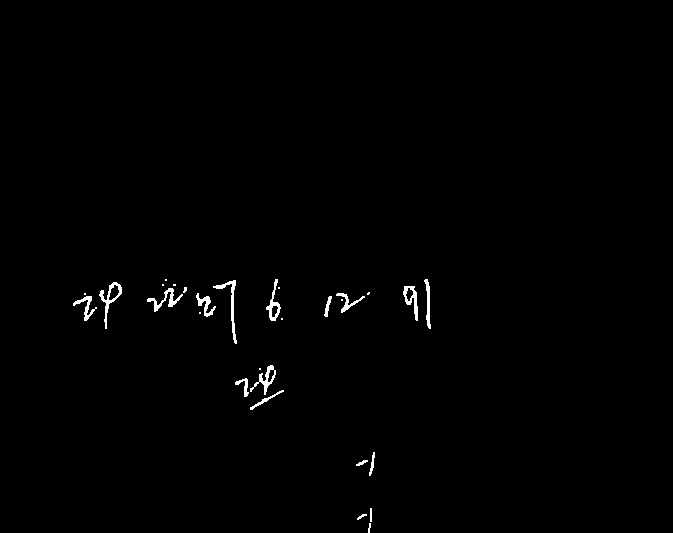 24 22 27 6 12 91
24
-1
-1